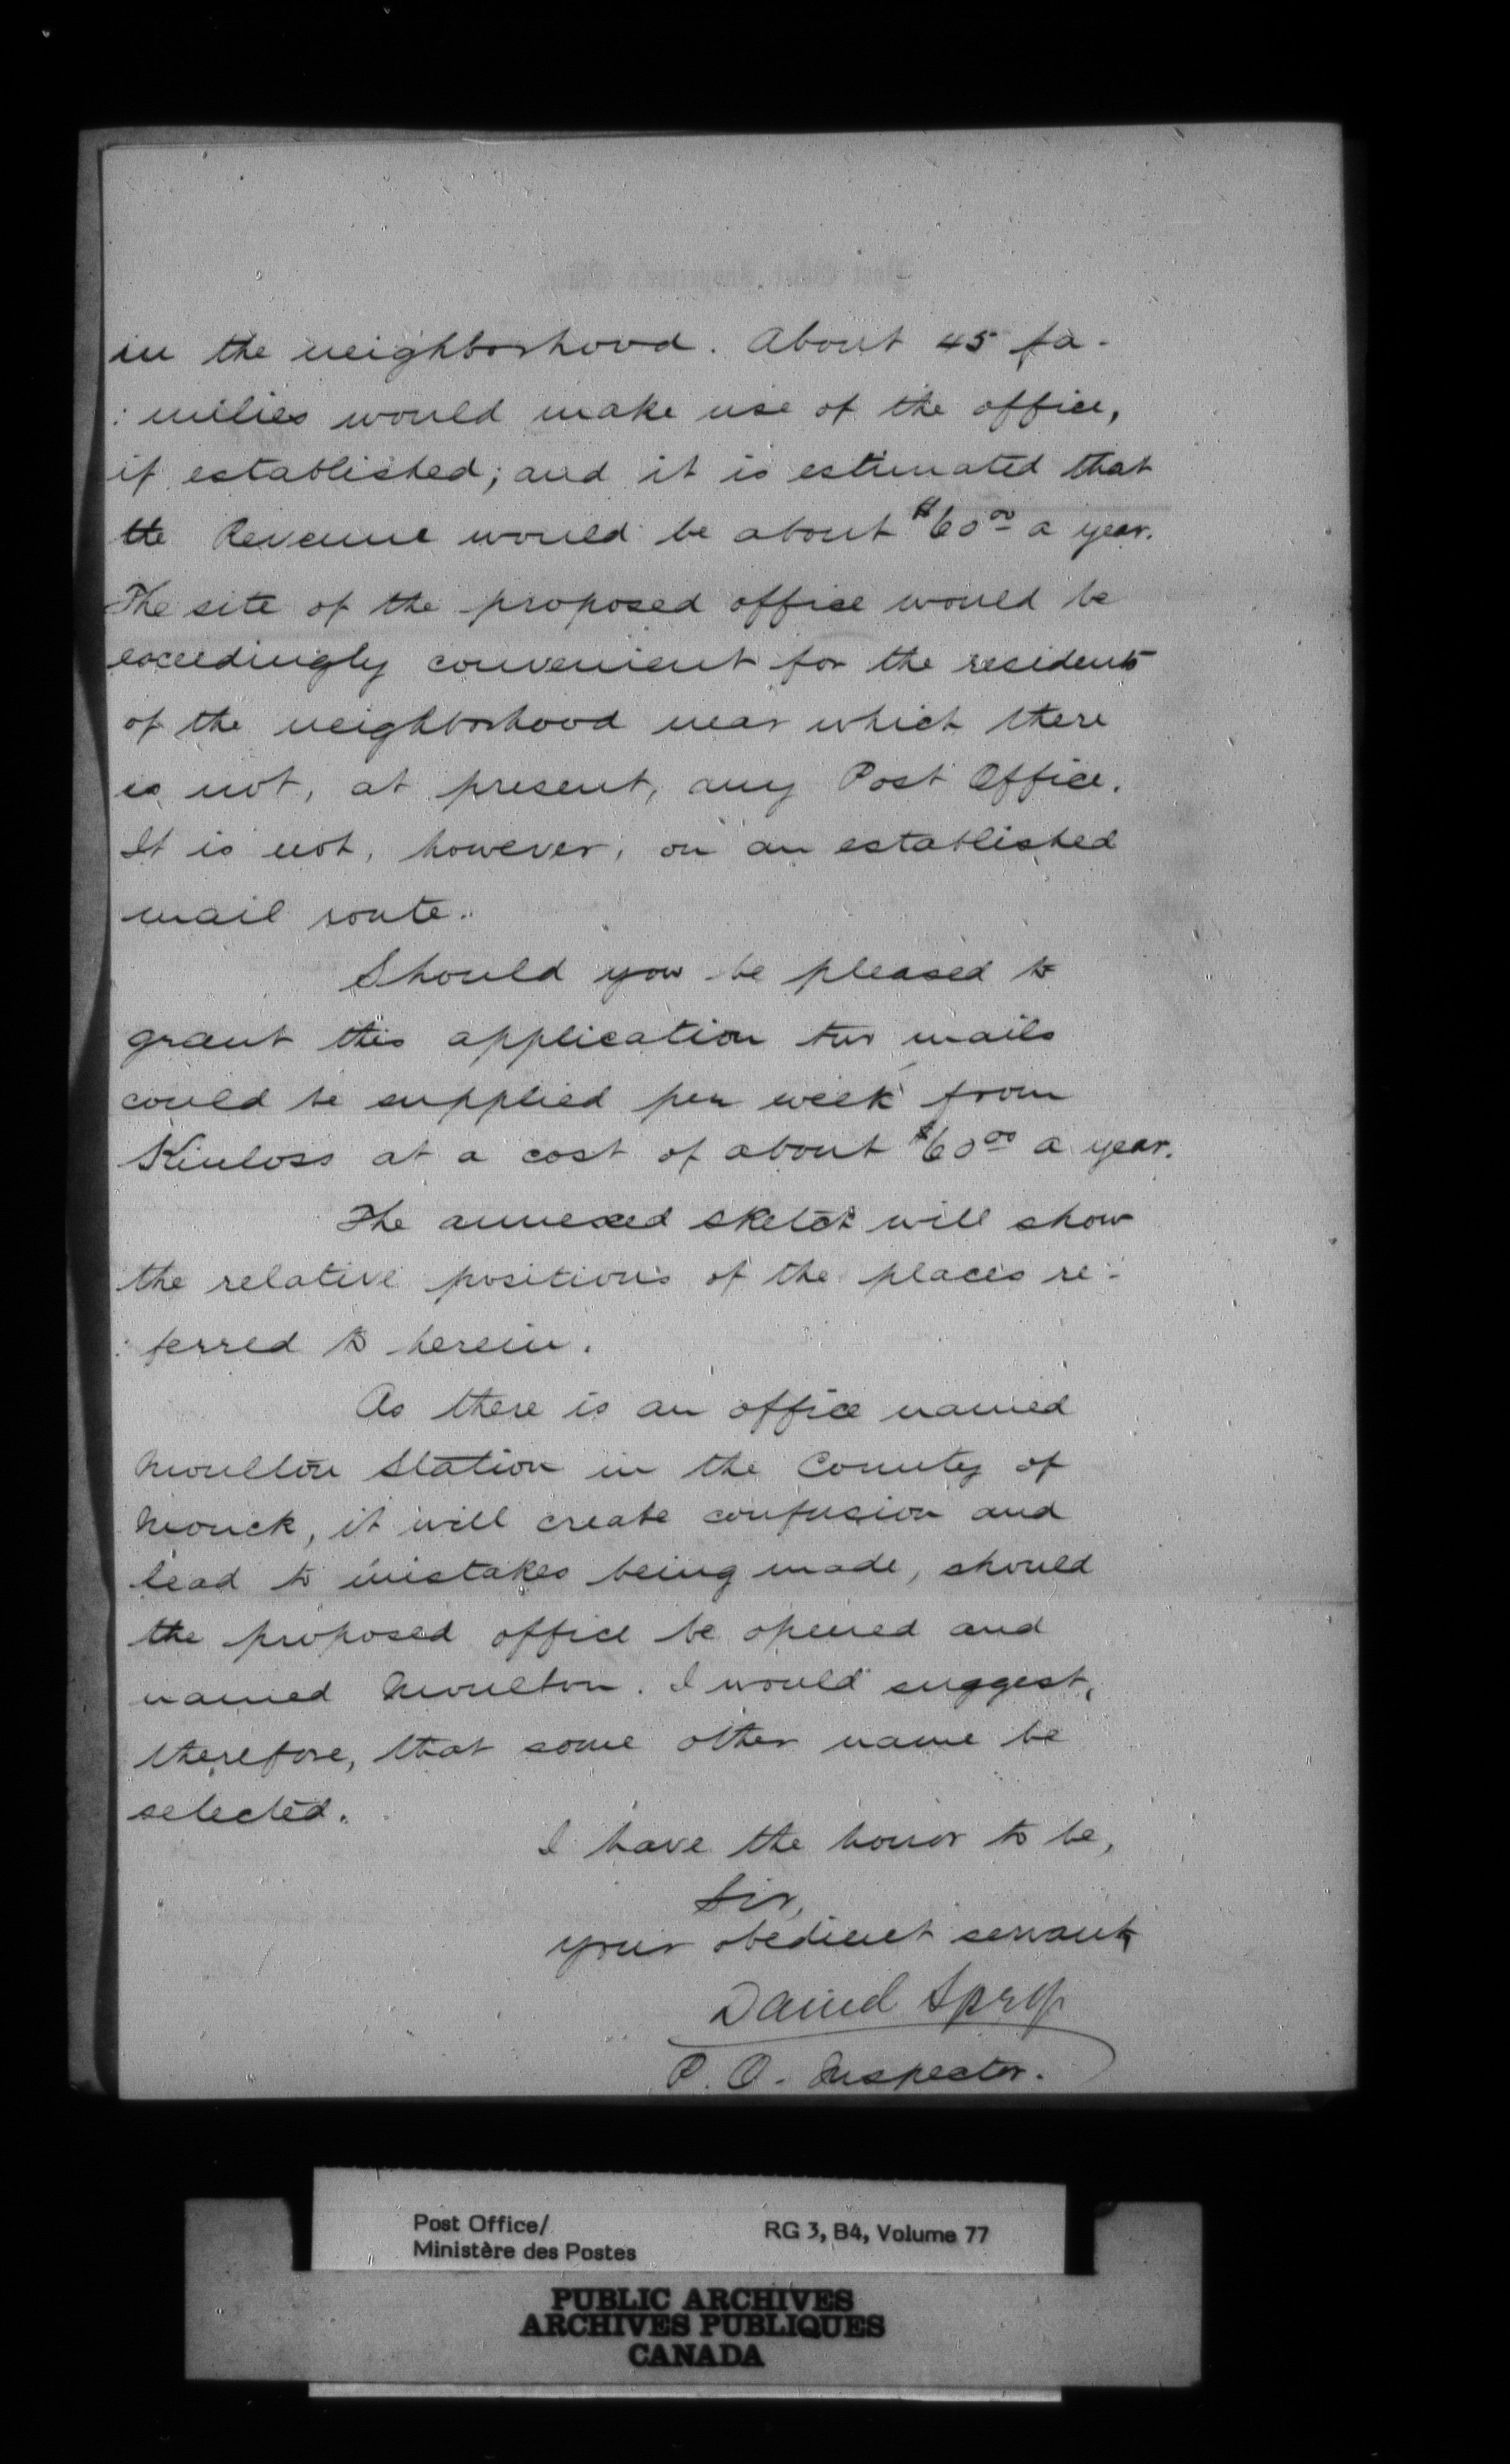 in the neighborhood. About 45 fa-
: milies would make use of the office,
if established; and it is estimated that
the Revenue would be about $60⁰⁰ a year.
The site of the proposed office would be
exceedingly convenient for the residents
of the neighborhood near which there
is not, at present, any Post Office.
It is not, however, on an established
mail route.
Should you be pleased to
grant this application two mails
could be supplied per week from
Kinloss at a cost of about $60⁰⁰ a year.
The annexed sketch will show
the relative positions of the places re-
: ferred to herein.
As there is an office named
Moulton Station in the County of
Monck, it will create confusion and
lead to mistakes being made, should
the proposed office be opened and
named Moulton. I would suggest,
therefore, that some other name be
selected.
I have the honor to be,
Sir,
your obedient servant
Daniel Spry
P. O. Inspector.
Post Office/
Ministère des Postes
RG 3, B4, Volume 77
PUBLIC ARCHIVES
ARCHIVES PUBLIQUES
CANADA